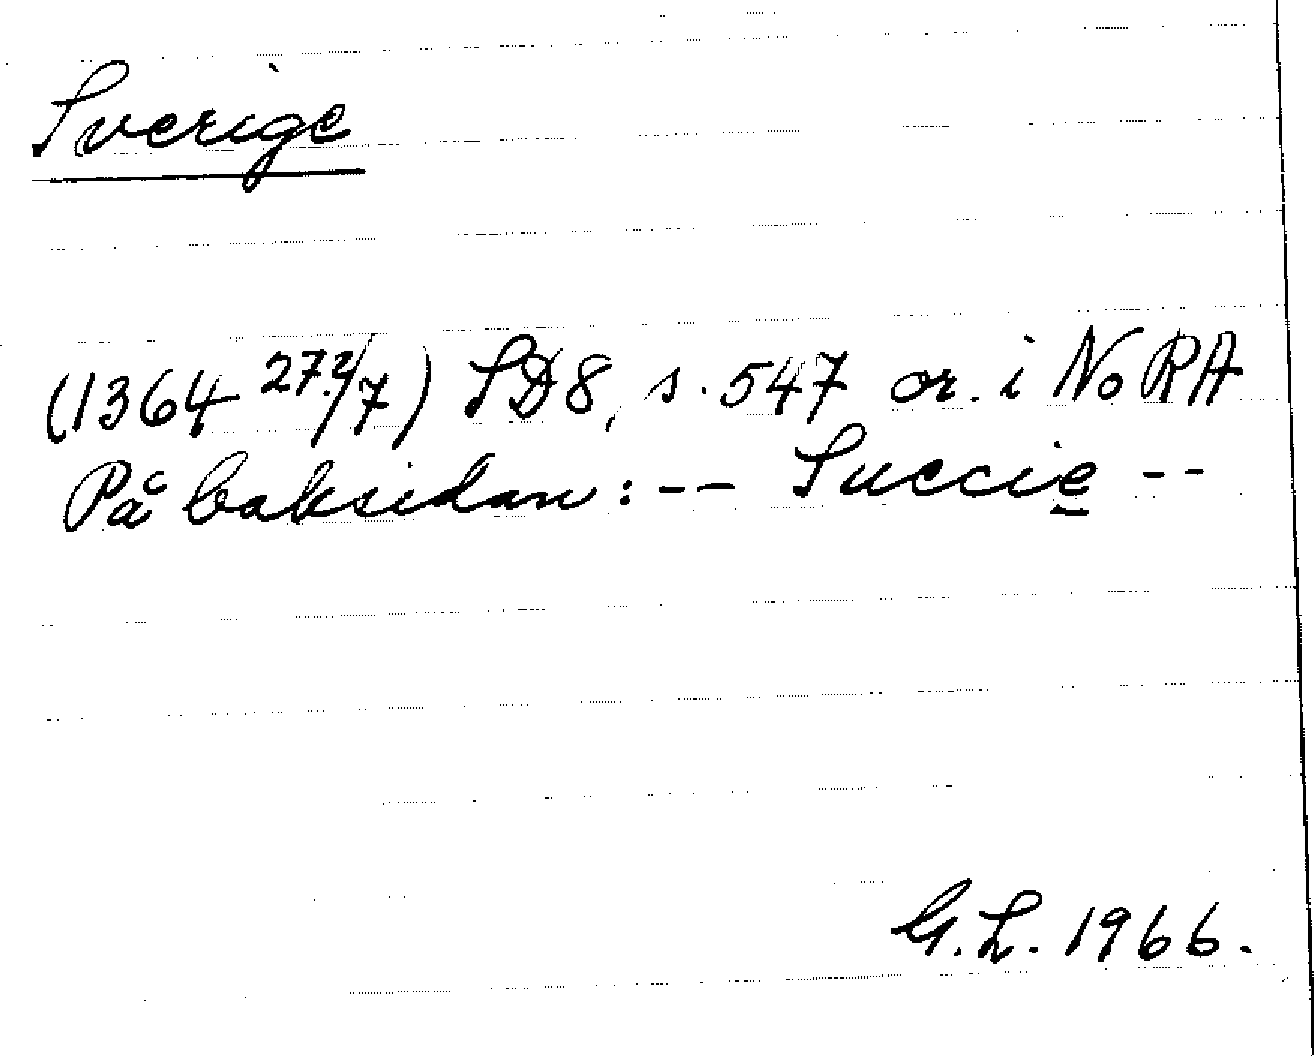 Sverige
(1364 27.?/7) SD8, s. 547 or. i No RA
På baksidan: -- Succie --
G.L. 1966.